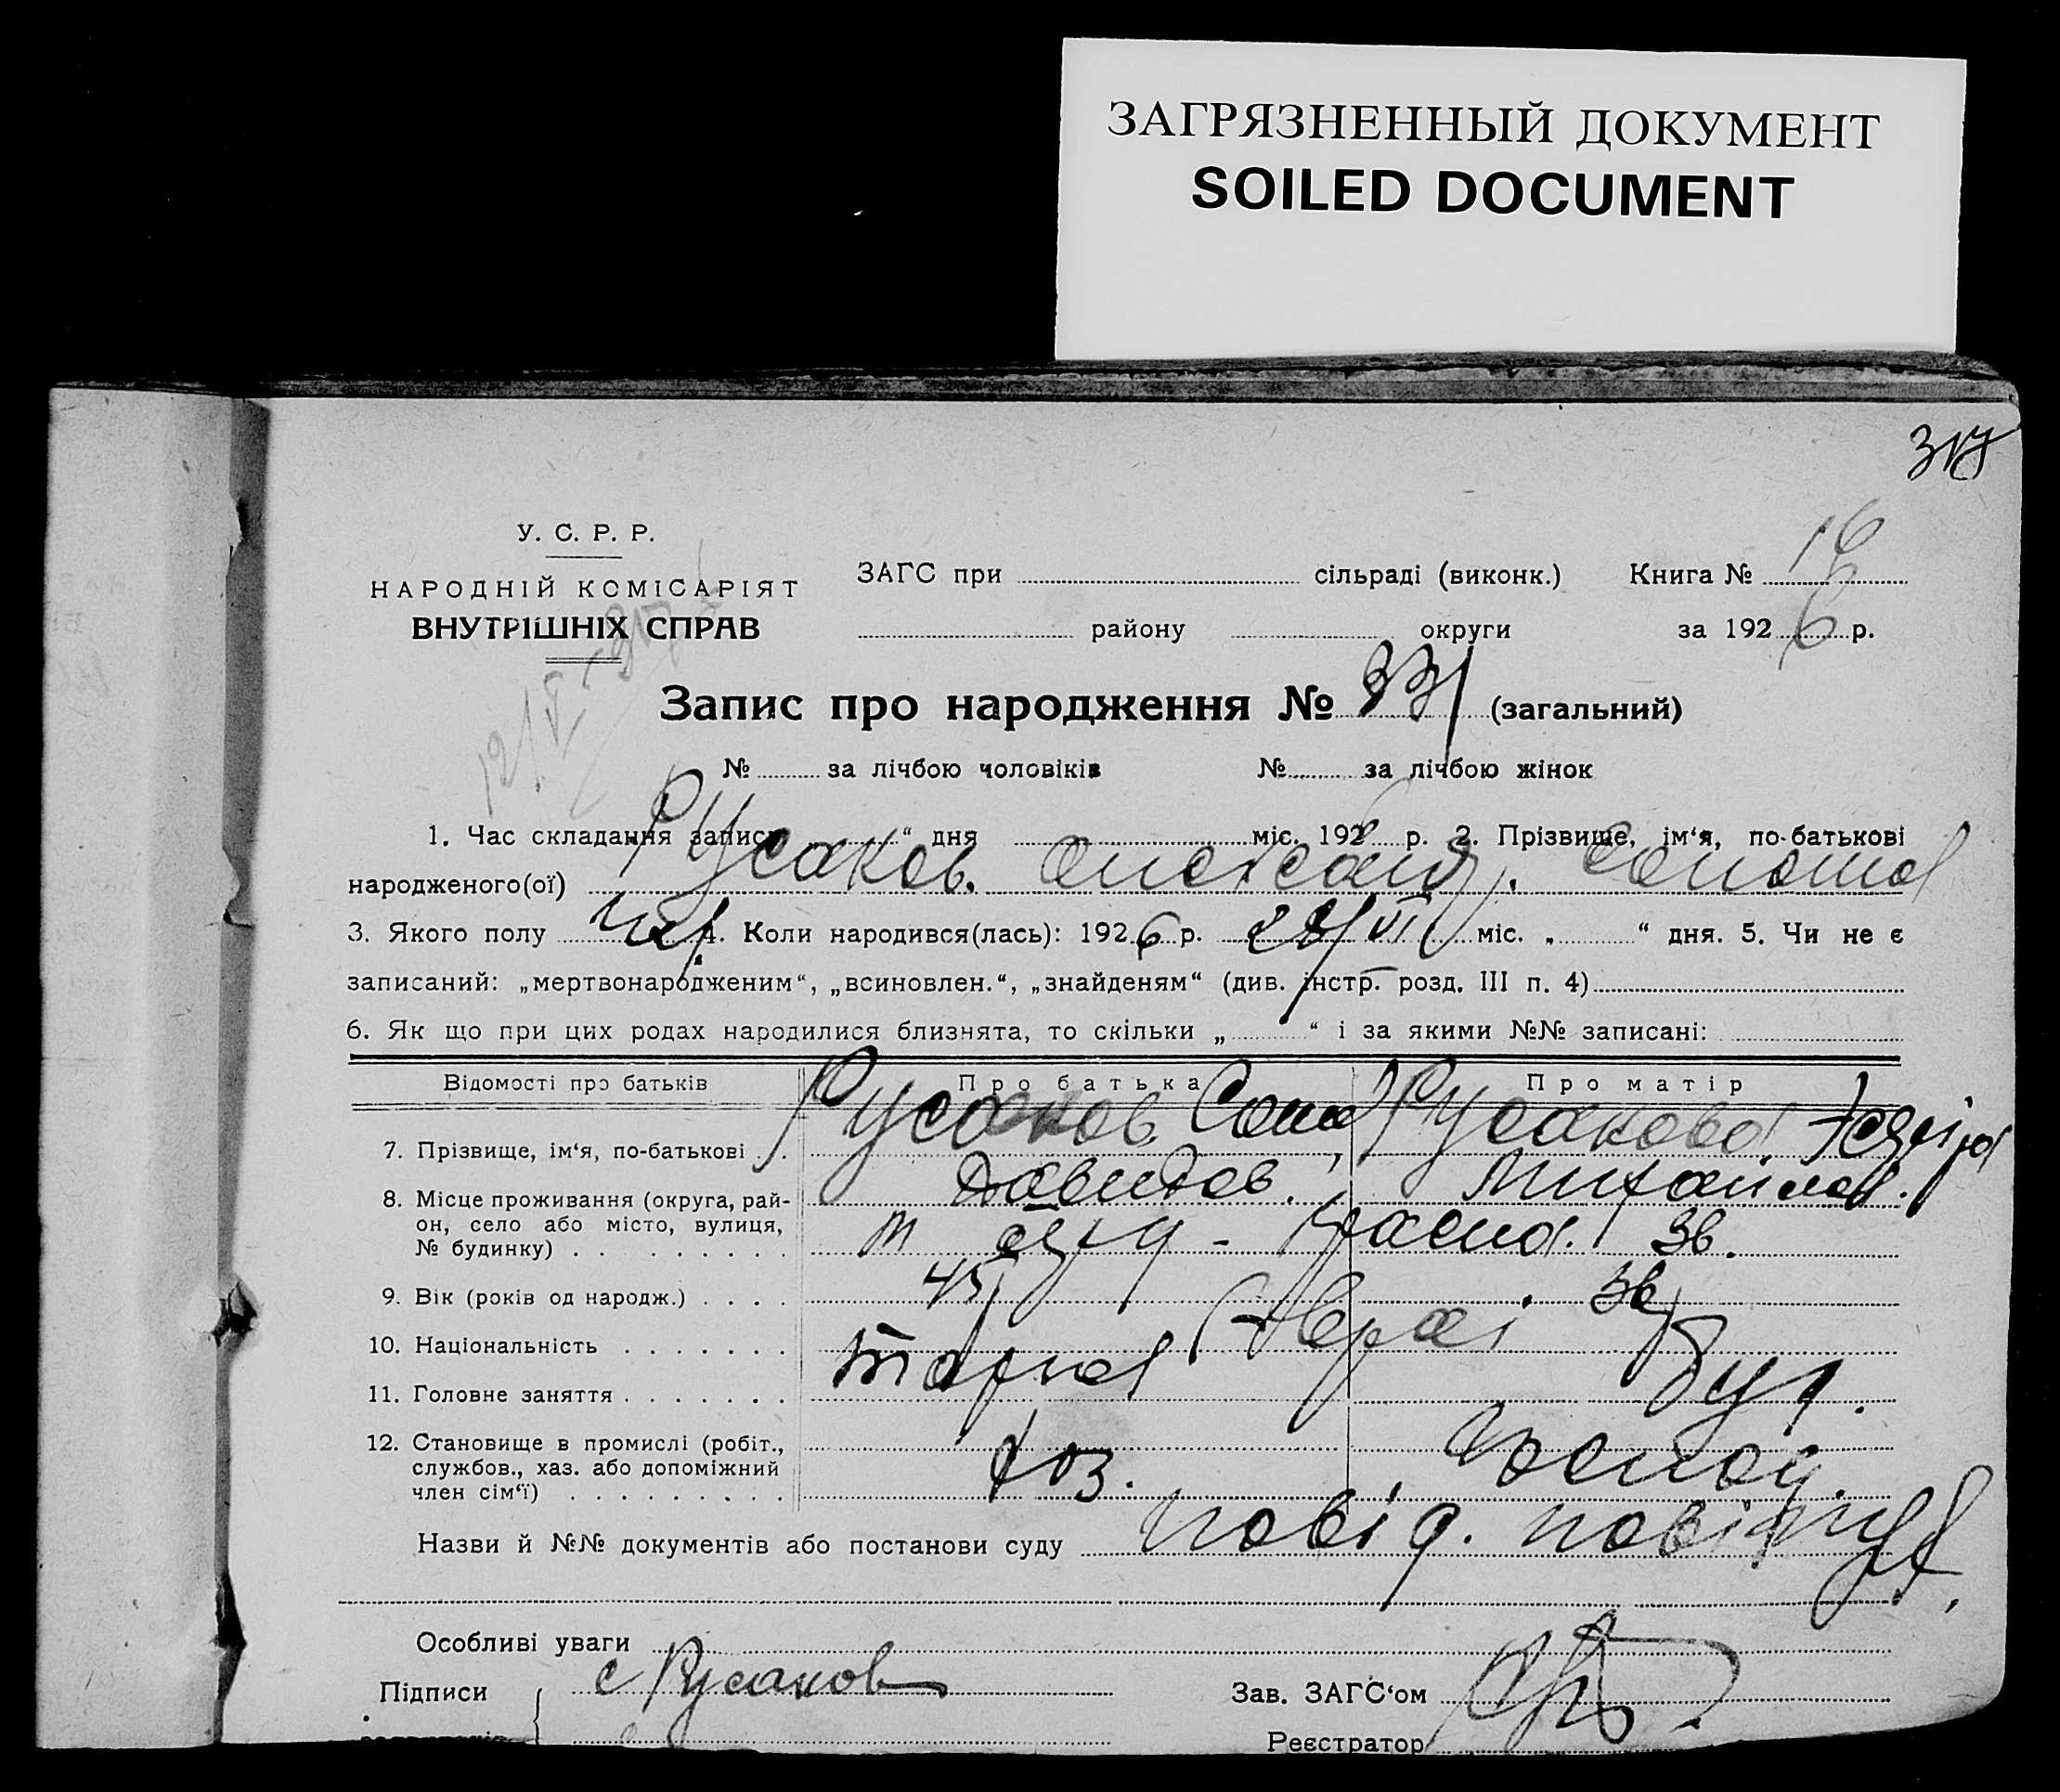 ЗАГРЯЗНЕННЫЙ ДОКУМЕНТ
SOILED DOCUMENT
317
У. С. Р. Р.
НАРОДНІЙ КОМІСАРІЯТ
ВНУТРІШНІХ СПРАВ
ЗАГС при сільраді (виконк.) Книга № 16
району округи за 1926 р.
Запис про народження № 331 (загальний)
№ за лічбою чоловіків № за лічбою жінок
1. Час складання запису “ дня міс. 192 р. 2. Прізвище, ім‘я, по-батькові
народженого(ої) Русаков.
3. Якого полу 4. Коли народився(лась): 1926 р. 28/VI міс. „ “ дня. 5. Чи не є
записаний: „мертвонародженим“, „всиновлен.“, „знайденям“ (див. інстр. розд. III п. 4)
6. Як що при цих родах народилися близнята, то скільки „ “ і за якими №№ записані:
Відомості про батьків Про батька Про матір
7. Прізвище, ім‘я, по-батькові Русаков Русакова
Давидов. Михайлов.
8. Місце проживання (округа, рай-
он, село або місто, вулиця,
№ будинку) м 36.
9. Вік (років од народж.) 45 36
10. Національність Євреї
11. Головне заняття
12. Становище в промислі (робіт.,
службов., хаз. або допоміжний
член сім‘ї) хоз.
Назви й №№ документів або постанови суду повід.
Особливі уваги
Підписи с Русаков Зав. ЗАГС‘ом
Реєстратор